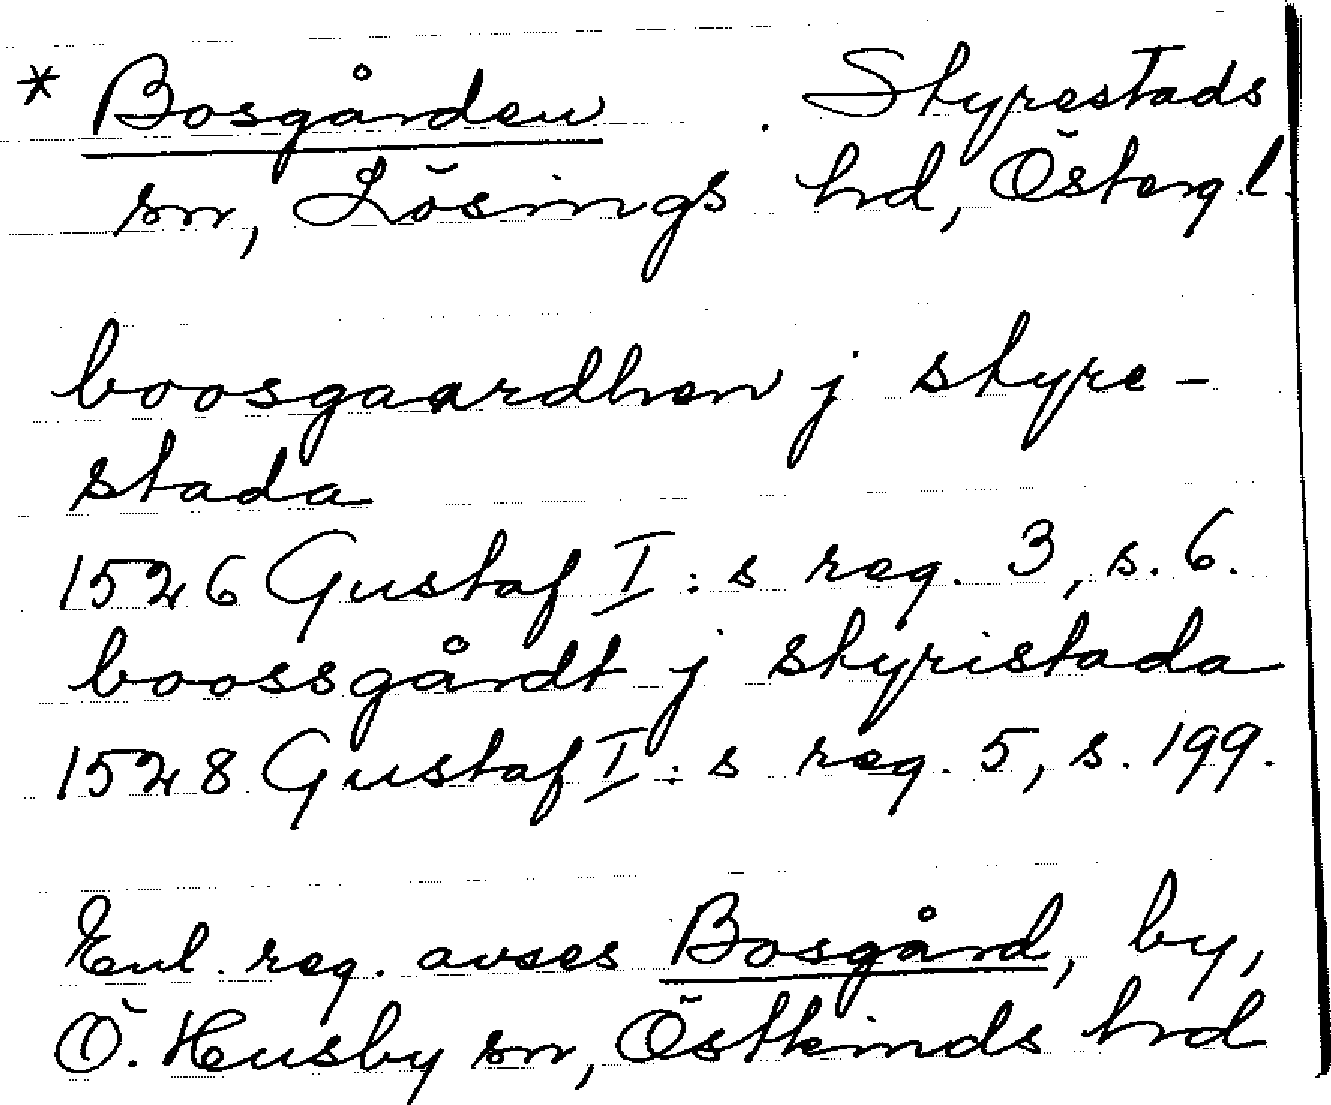 * Bosgården . Styrestads
sn, Lösings hd, Östergl.
boosgaardhen j styre-
stada
1526 Gustaf I:s reg. 3, s. 6.
boossgårdt j styristada
1528 Gustaf I:s reg. 5, s. 199.
Enl. reg. avses Bosgård, by,
Ö. Husby sn, Östkinds hd